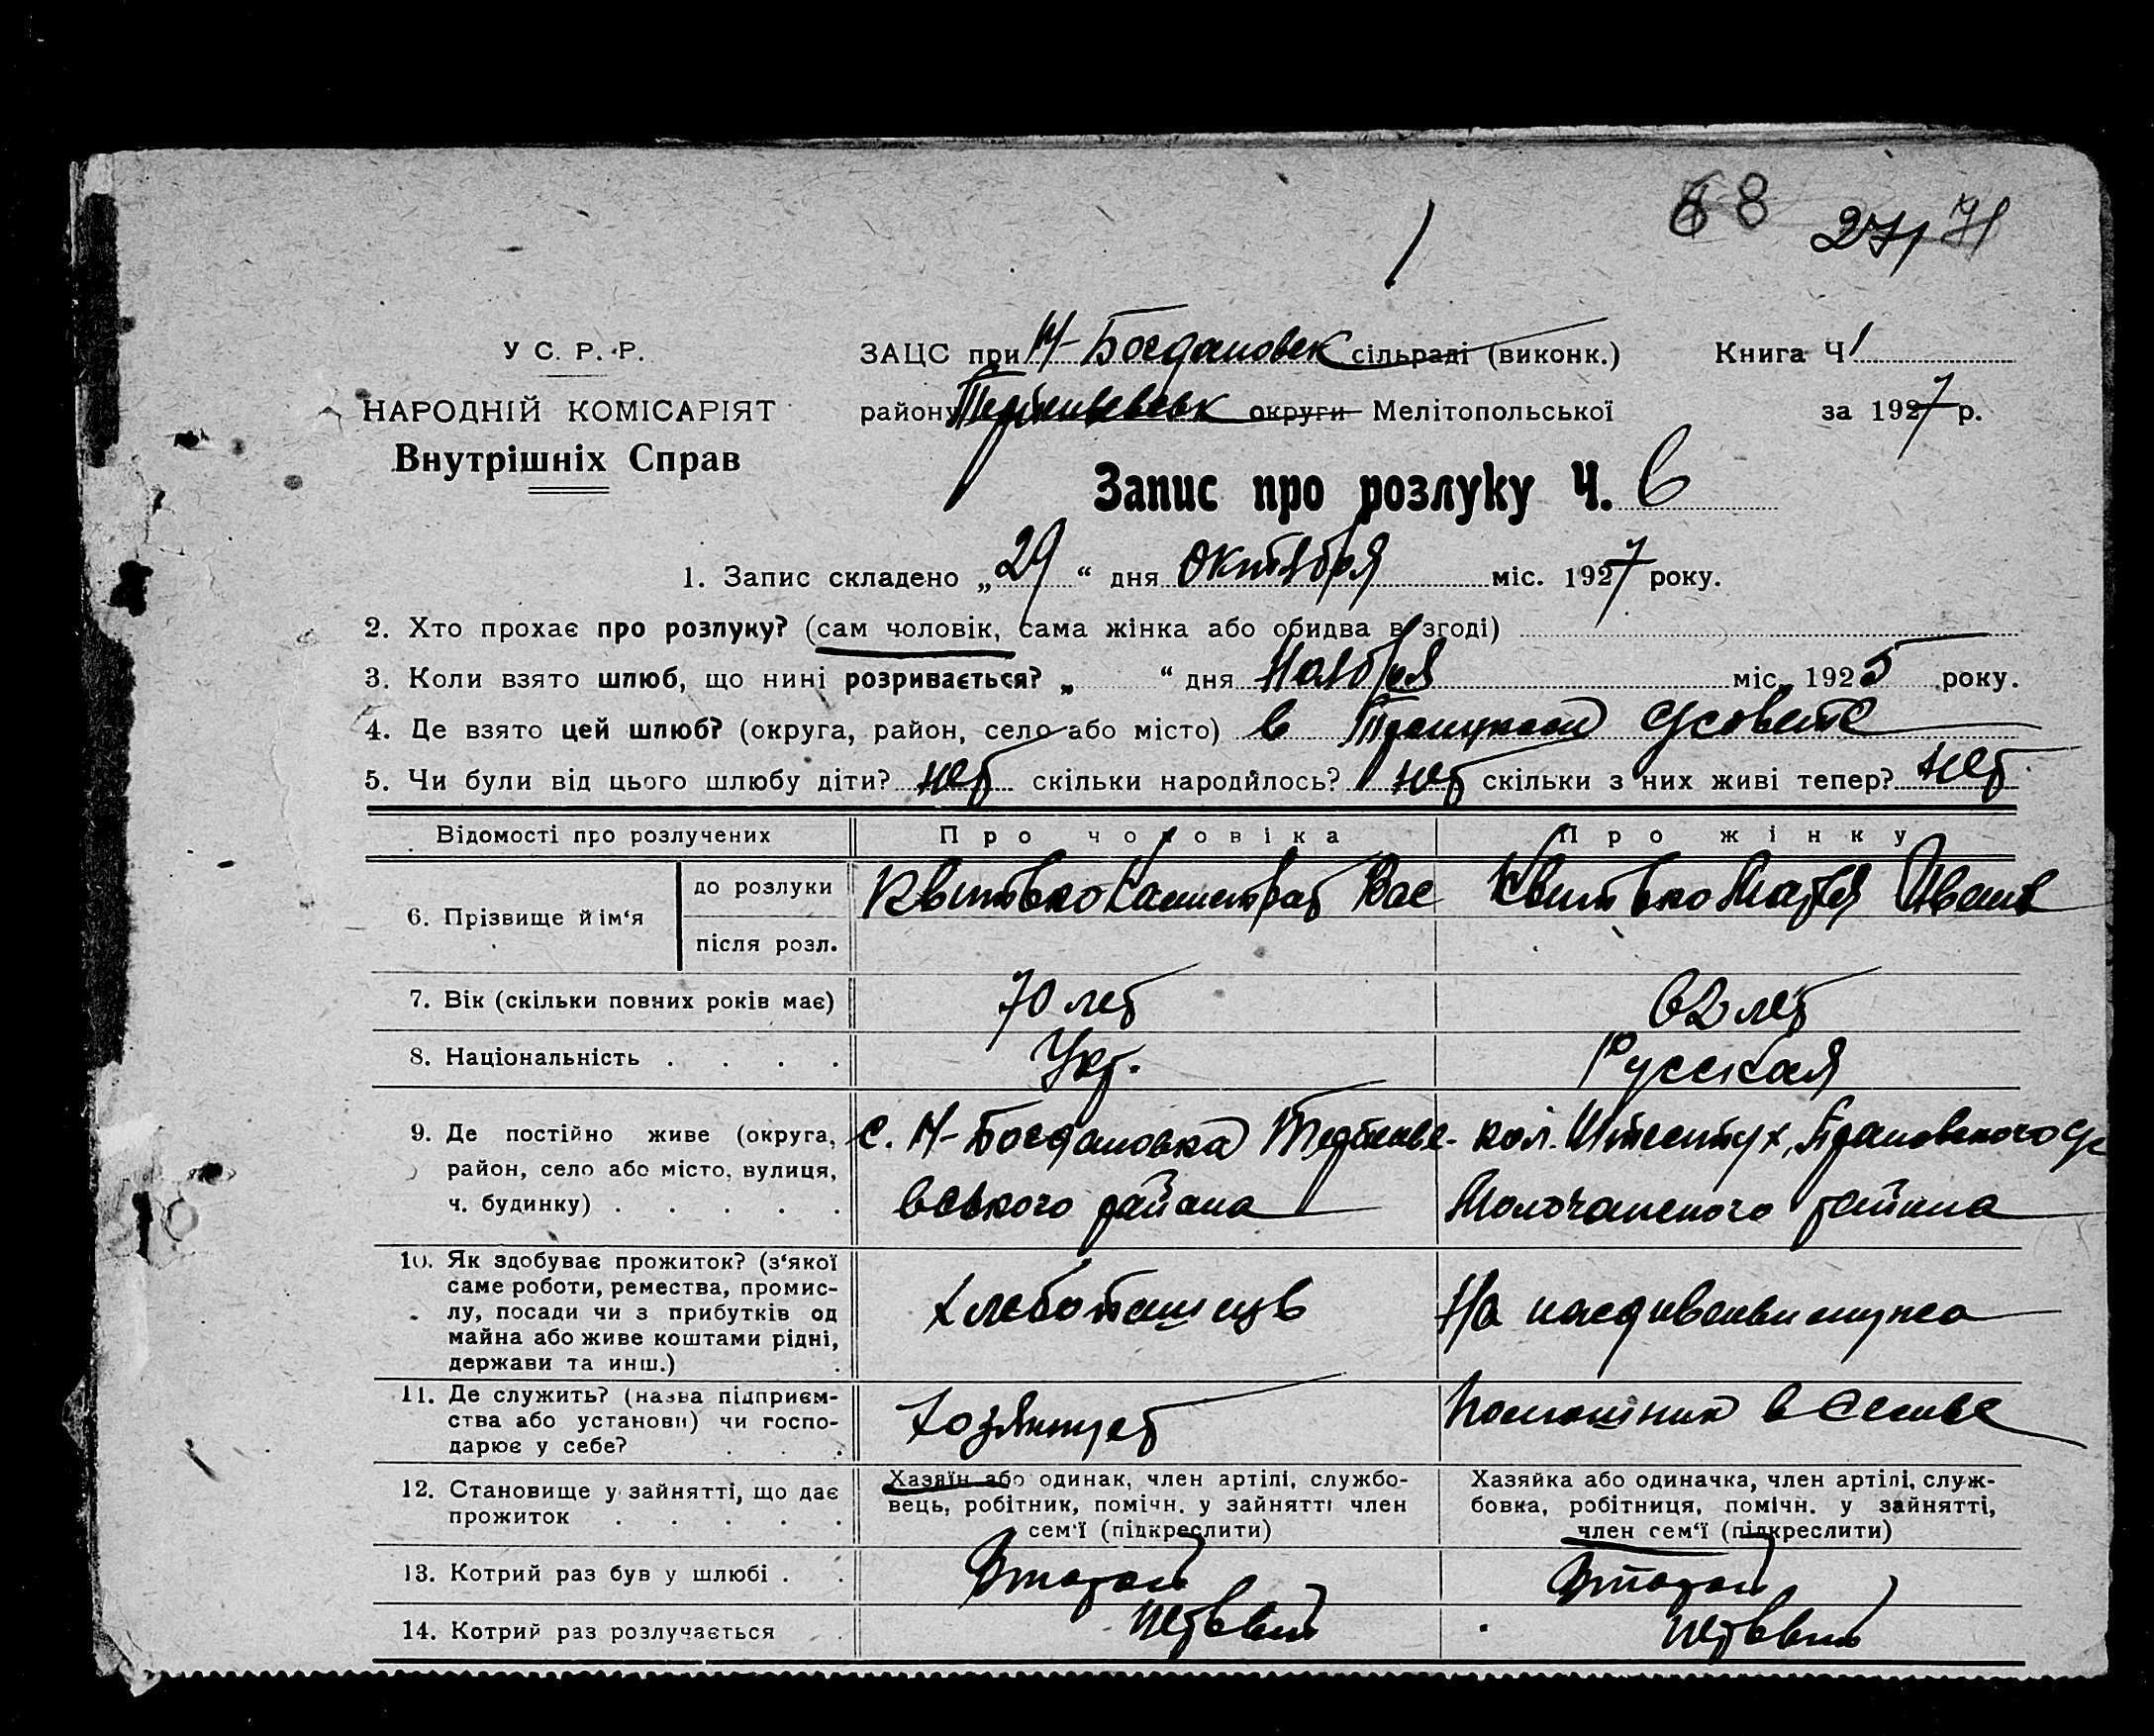 68 271 71
У С. Р. Р. ЗАЦС при Н-Богдановск сільраді (виконк.) Книга Ч 1
НАРОДНІЙ КОМІСАРІЯТ району округи Мелітопольської за 1927 р.
Внутрішніх Справ
Запис про розлуку Ч. 6
1. Запис складено „29“ дня Октября міс. 1927 року.
2. Хто прохає про розлуку? (сам чоловік, сама жінка або обидва в згоді)
3. Коли взято шлюб, що нині розривається? „ “ дня Ноября міс. 1925 року.
4. Де взято цей шлюб? (округа, район, село або місто) в с/совете
5. Чи були від цього шлюбу діти? нет скільки народилось? нет скільки з них живі тепер? нет
Відомості про розлучених Про чоловіка Про жінку
6. Прізвище й ім‘я до розлуки Квитко Калистрат Вас Квитко Мария Иванв
після розл.
7. Вік (скільки повних років має) 70 лет 62 лет
8. Національність . . . . Укр. Русская
9. Де постійно живе (округа, с. Н-Богдановка кол.
район, село або місто, вулиця, вського района Молочанского района
ч. будинку) . . . . .
10. Як здобуває прожиток? (з‘якої
саме роботи, ремества, промис-
лу, посади чи з прибутків од хлебопашець На мужа
майна або живе коштами рідні,
держави та инш.)
11. Де служить? (назва підприєм-
ства або установи) чи госпо- Хозяинует помошник в
дарює у себе? . . .
12. Становище у зайнятті, що дає прожиток . . . . . Хазяїн або одинак, член артілі, службо- Хазяйка або одиначка, член артілі, служ-
вець, робітник, помічн. у зайнятті член бовка, робітниця, помічн. у зайнятті,
сем‘ї (підкреслити) член сем‘ї (підкреслити)
13. Котрий раз був у шлюбі . . Второй Второй
14. Котрий раз розлучається первый первый